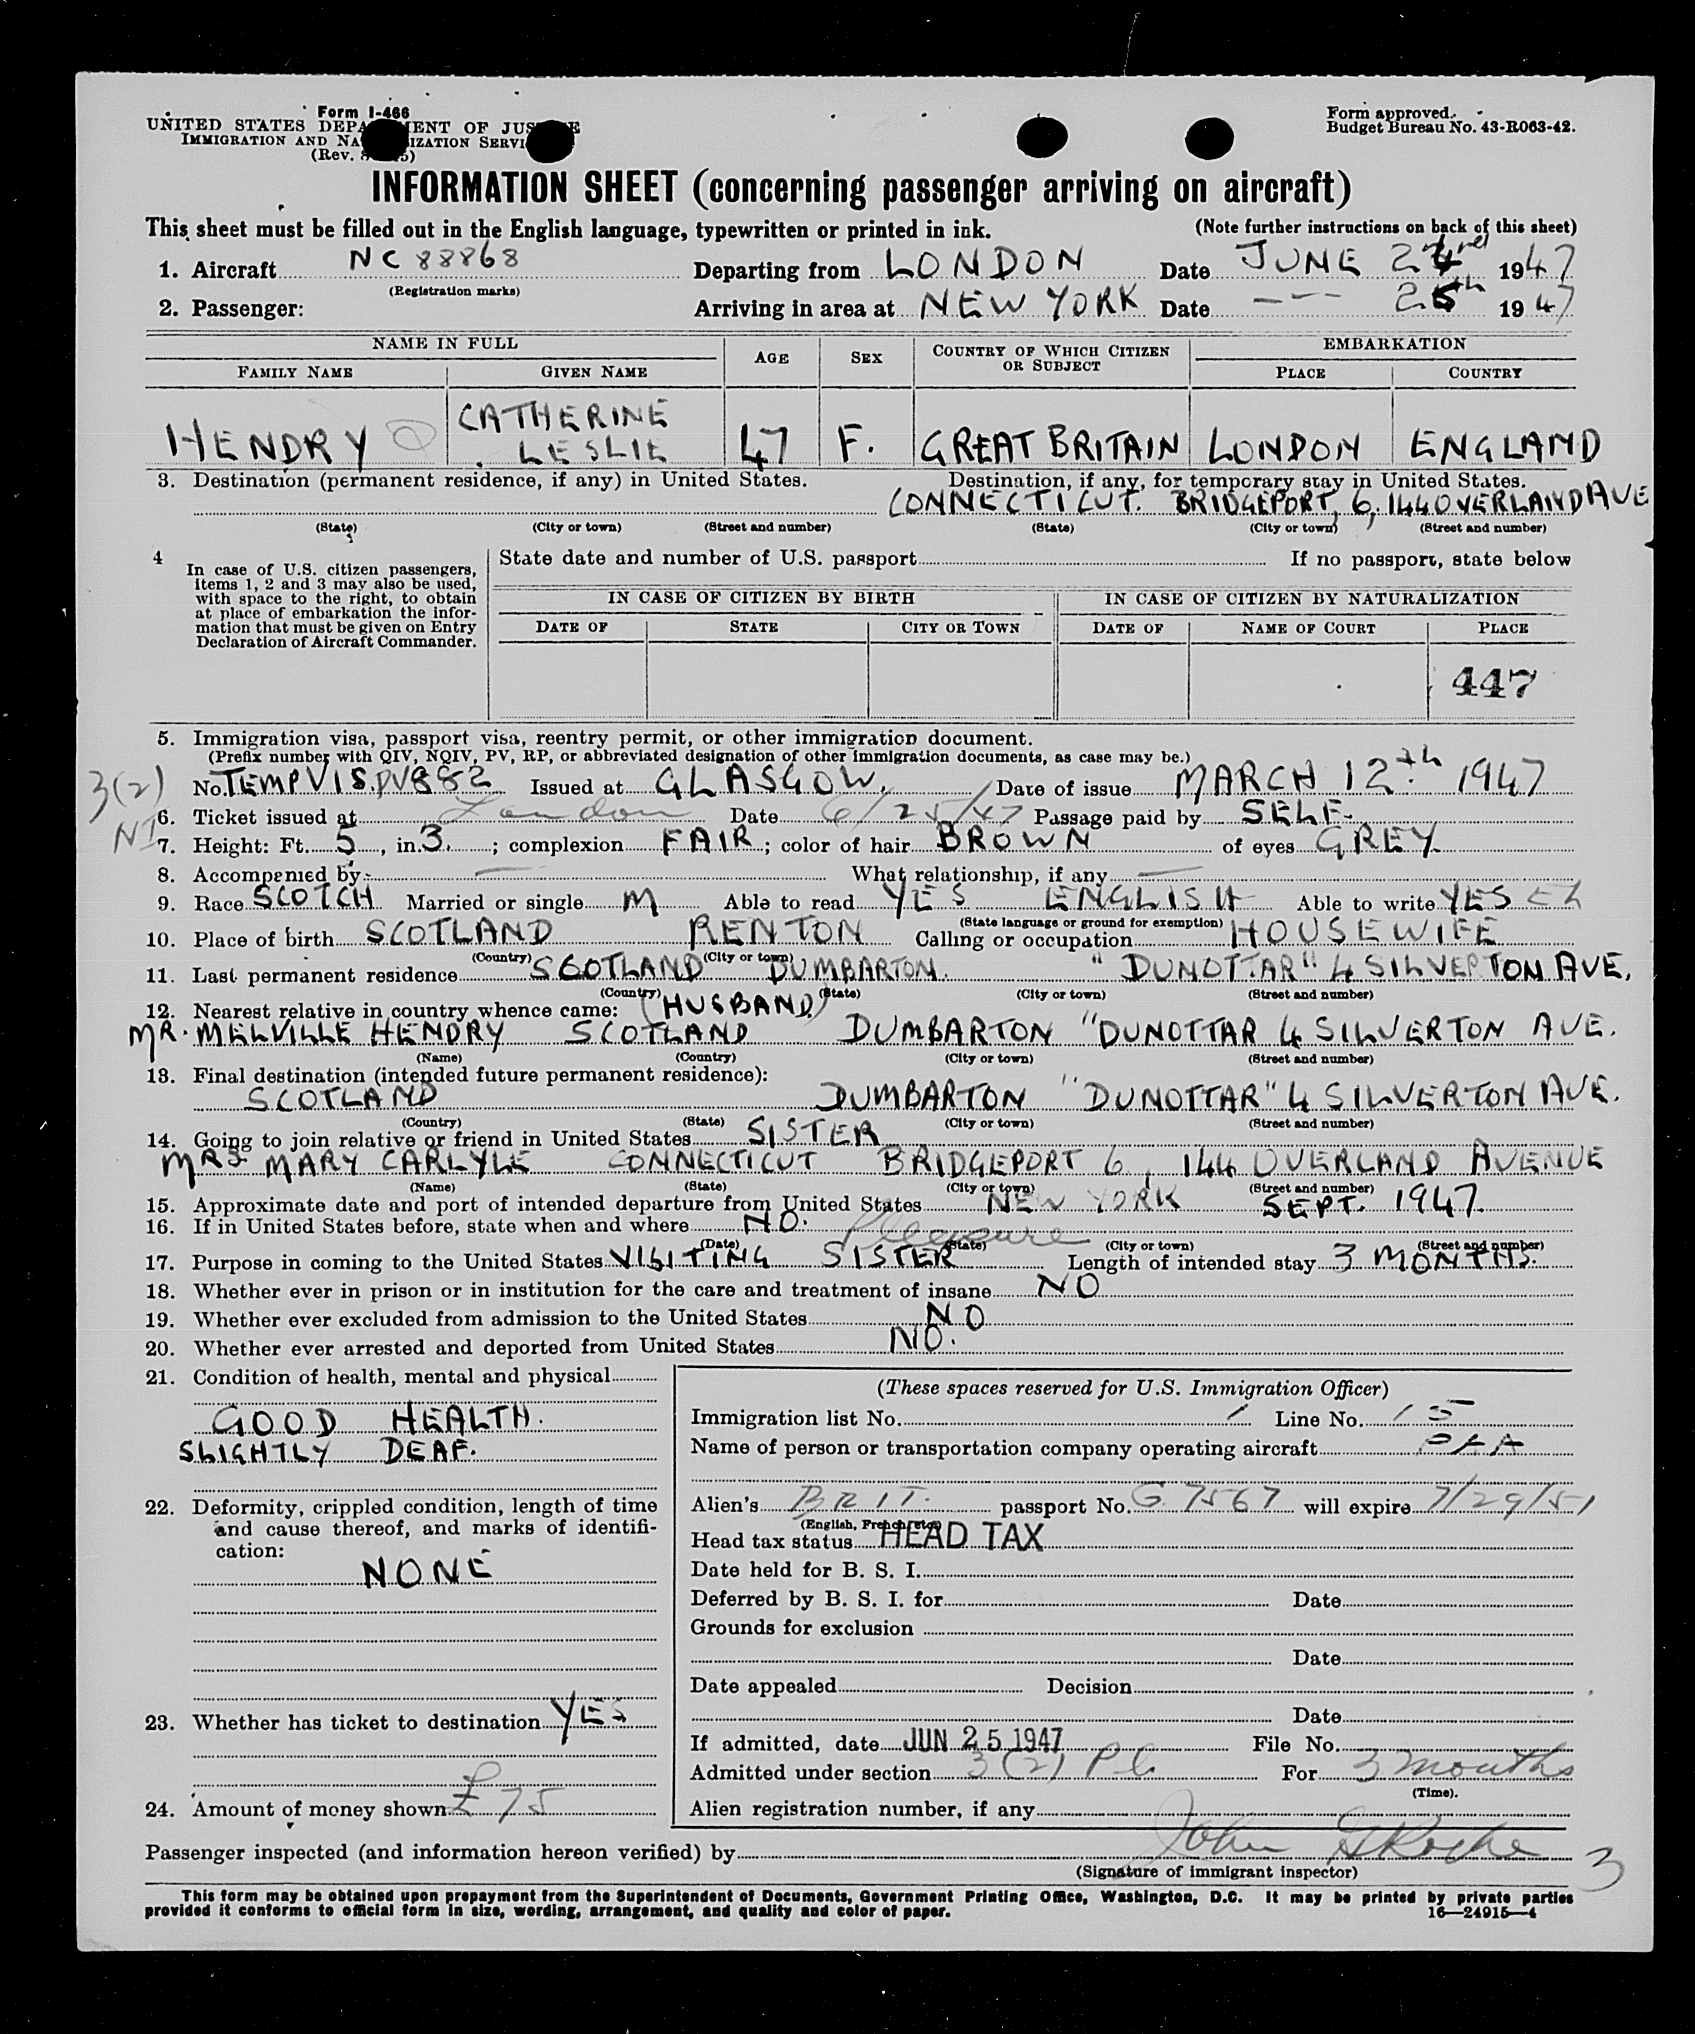 Form I-466
UNITED STATES DEPA ENT OF JUS E
IMMIGRATION AND NA IZATION SERVI
(Rev.
Form approved.
Budget Bureau No. 43-R063-42.
INFORMATION SHEET (concerning passenger arriving on aircraft)
This sheet must be filled out in the English language, typewritten or printed in ink. (Note further instructions on back of this sheet)
1. Aircraft NC 88868 Departing from LONDON Date JUNE 1947
(Registration marks)
2. Passenger: Arriving in area at NEW YORK Date --- 25th 1947
NAME IN FULL AGE SEX COUNTRY OF WHICH CITIZEN OR SUBJECT EMBARKATION
FAMILY NAME GIVEN NAME PLACE COUNTRY
HENDRY CATHERINE LESLIE 47 F. GREAT BRITAIN LONDON ENGLAND
3. Destination (permanent residence, if any) in United States. Destination, if any, for temporary stay in United States.
CONNECTICUT. BRIDGEPORT, 6, 144 OVERLAND AVE
(State) (City or town) (Street and number) (State) (City or town) (Street and number)
4 In case of U.S. citizen passengers, items 1, 2 and 3 may also be used, with space to the right, to obtain at place of embarkation the information that must be given on Entry Declaration of Aircraft Commander.
State date and number of U.S. passport If no passport, state below
IN CASE OF CITIZEN BY BIRTH IN CASE OF CITIZEN BY NATURALIZATION
DATE OF STATE CITY OR TOWN DATE OF NAME OF COURT PLACE
447
5. Immigration visa, passport visa, reentry permit, or other immigration document.
(Prefix number with QIV, NQIV, PV, RP, or abbreviated designation of other immigration documents, as case may be.)
3(2) No. TEMP VIS. PV 882 Issued at GLASGOW. Date of issue MARCH 12th 1947
6. Ticket issued at London Date 6/25/47 Passage paid by SELF.
NI 7. Height: Ft. 5, in. 3. ; complexion FAIR; color of hair BROWN of eyes GREY.
8. Accompanied by — What relationship, if any —
9. Race SCOTCH Married or single M Able to read YES ENGLISH Able to write YES
(State language or ground for exemption)
10. Place of birth SCOTLAND RENTON Calling or occupation HOUSEWIFE
(Country) (City or town)
11. Last permanent residence SCOTLAND DUMBARTON. "DUNOTTAR" 4 SILVERTON AVE.
(Country) (State) (City or town) (Street and number)
12. Nearest relative in country whence came: (HUSBAND)
MR. MELVILLE HENDRY SCOTLAND DUMBARTON "DUNOTTAR 4 SILVERTON AVE.
(Name) (Country) (City or town) (Street and number)
13. Final destination (intended future permanent residence):
SCOTLAND DUMBARTON "DUNOTTAR" 4 SILVERTON AVE.
(Country) (State) (City or town) (Street and number)
14. Going to join relative or friend in United States SISTER
MRS MARY CARLYLE CONNECTICUT BRIDGEPORT 6, 144 OVERLAND AVENUE
(Name) (State) (City or town) (Street and number)
15. Approximate date and port of intended departure from United States NEW YORK SEPT. 1947.
16. If in United States before, state when and where NO.
Pleasure
(Date) (State) (City or town) (Street and number)
17. Purpose in coming to the United States VISITING SISTER Length of intended stay 3 MONTHS.
18. Whether ever in prison or in institution for the care and treatment of insane NO
19. Whether ever excluded from admission to the United States NO
20. Whether ever arrested and deported from United States NO.
21. Condition of health, mental and physical
GOOD HEALTH.
SLIGHTLY DEAF.
22. Deformity, crippled condition, length of time
and cause thereof, and marks of identifi-
cation:
NONE
23. Whether has ticket to destination YES
24. Amount of money shown £75
(These spaces reserved for U.S. Immigration Officer)
Immigration list No. 1 Line No. 15
Name of person or transportation company operating aircraft PAA
Alien's BRIT. passport No. G 7567 will expire 7/29/51
(English, French, etc.)
Head tax status HEAD TAX
Date held for B. S. I.
Deferred by B. S. I. for Date
Grounds for exclusion
Date
Date appealed Decision
Date
If admitted, date JUN 25 1947 File No.
Admitted under section 3(2) Pl. For 3 months
(Time).
Alien registration number, if any
Passenger inspected (and information hereon verified) by John Roche 3
(Signature of immigrant inspector)
This form may be obtained upon prepayment from the Superintendent of Documents, Government Printing Office, Washington, D.C. It may be printed by private parties
provided it conforms to official form in size, wording, arrangement, and quality and color of paper. 16—24915—4